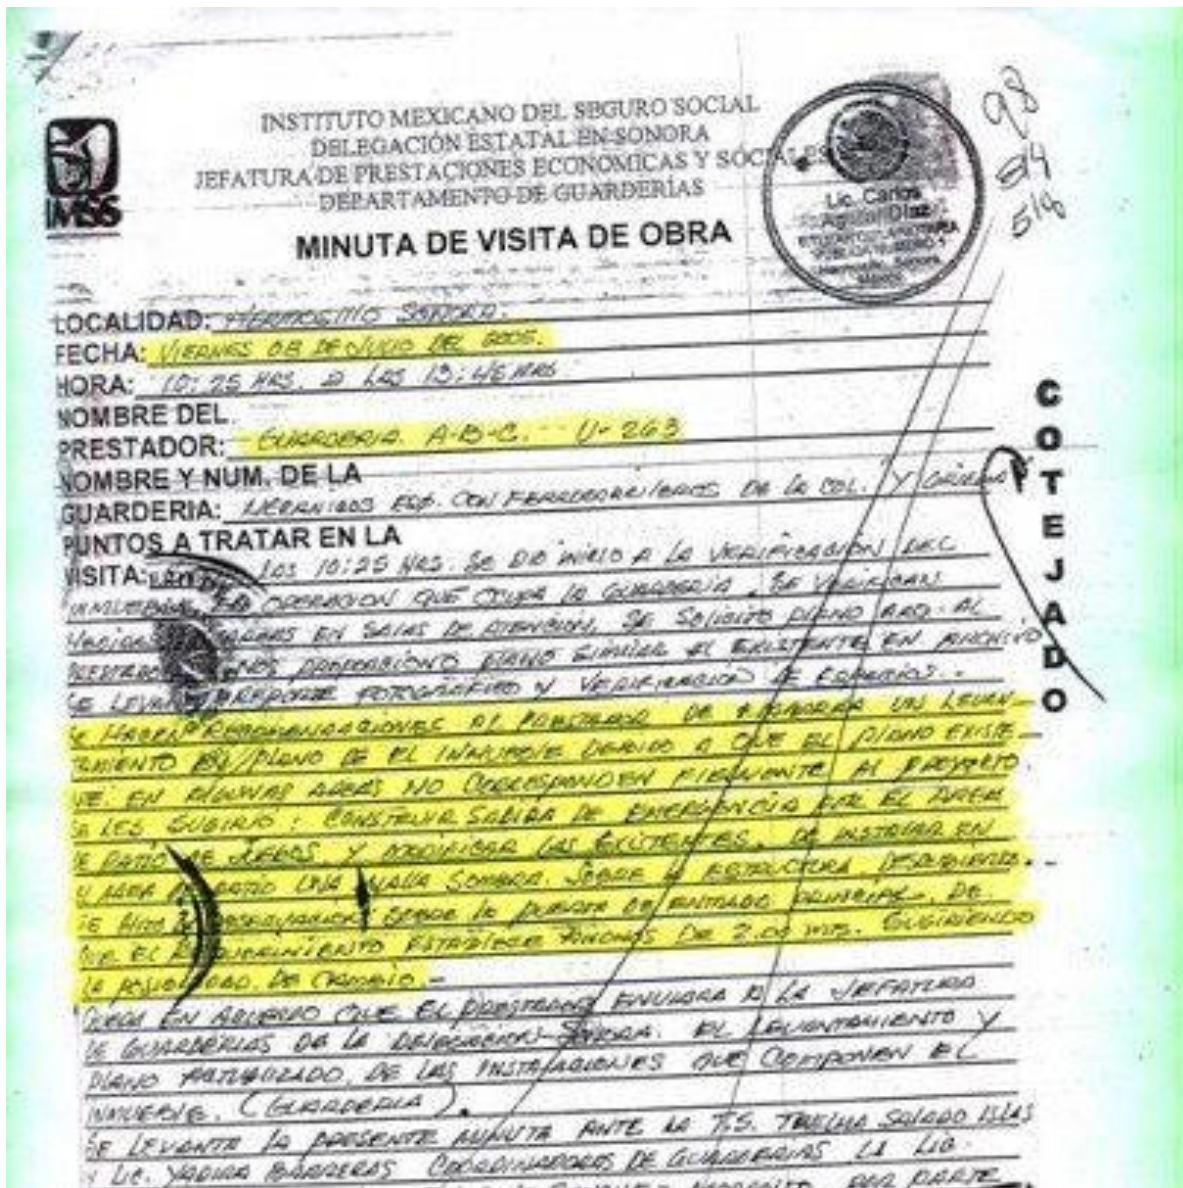 INSTITUTO MEXICANO DEL SEGURO SOCIAL
DELEGACIÓN ESTATAL EN SONORA
JEFATURA DE PRESTACIONES ECONOMICAS Y SOCIALES
DEPARTAMENTO DE GUARDERÍAS
IMSS
MINUTA DE VISITA DE OBRA
Lic. Carlos
Hermosillo, Sonora
98
LOCALIDAD: HERMOSILLO SONORA.
FECHA: VIERNES 08 DE JULIO DEL 2005.
HORA: 10:25 HRS. A LAS 13:45 HRS
NOMBRE DEL
PRESTADOR: GUARDERIA A-B-C. U-263
NOMBRE Y NUM. DE LA
GUARDERIA: ESQ. CON FERROCARRILEROS DE LA COL. Y
PUNTOS A TRATAR EN LA
VISITA: LAS 10:25 HRS. SE DIO INICIO A LA VERIFICACIÓN DEL
INMUEBLE OPERACION QUE OCUPA LA GUARDERIA. SE VERIFICAN
EN SALAS DE ATENCION, SE SOLICITO PLANO ARQ. AL
NOS PROPORCIONO PLANO SIMILAR AL EXISTENTE EN ARCHIVO
SE LEVANTA REPORTE FOTOGRAFICO Y VERIFICACION DE ESPACIOS.-
SE HACEN RECOMENDACIONES AL PRESTADOR DE UN LEVAN-
TAMIENTO PLANO DE EL INMUEBLE DEBIDO A QUE EL PLANO EXISTE-
TE EN ALGUNAS AREAS NO CORRESPONDEN FIELMENTE AL PROYECTO
SE LES SUGIRIO: CONSTRUIR SALIDA DE EMERGENCIA POR EL AREA
DE PATIO DE JUEGOS Y MODIFICAR LAS EXISTENTES, DE INSTALAR EN
AREA DE PATIO UNA MALLA SOMBRA. SOBRE LA ESTRUCTURA
SE HIZO OBSERVACION SOBRE LA PUERTA DE ENTRADA PRINCIPAL. DE
QUE EL REQUERIMIENTO ESTABLECE DE 2.00 MTS. SUGIRIENDO
LA POSIBILIDAD DE CAMBIO.-
QUEDA EN ACUERDO QUE EL PRESTADOR ENVIARA A LA JEFATURA
DE GUARDERIAS DE LA DELEGACION SONORA. EL LEVANTAMIENTO Y
PLANO ACTUALIZADO, DE LAS INSTALACIONES QUE COMPONEN EL
INMUEBLE. (GUARDERIA).
SE LEVANTA LA PRESENTE MINUTA ANTE LA T.S. THELMA SALADO ISLAS
Y LIC. YADIRA BARRERAS COORDINADORAS DE GUARDERIAS LA LIC.
POR PARTE
COTEJADO